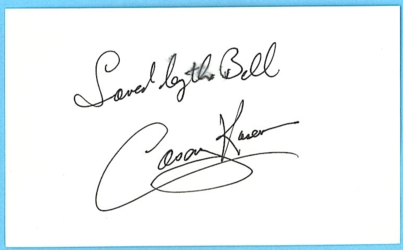 Saved by the Bell
Casey Kasem